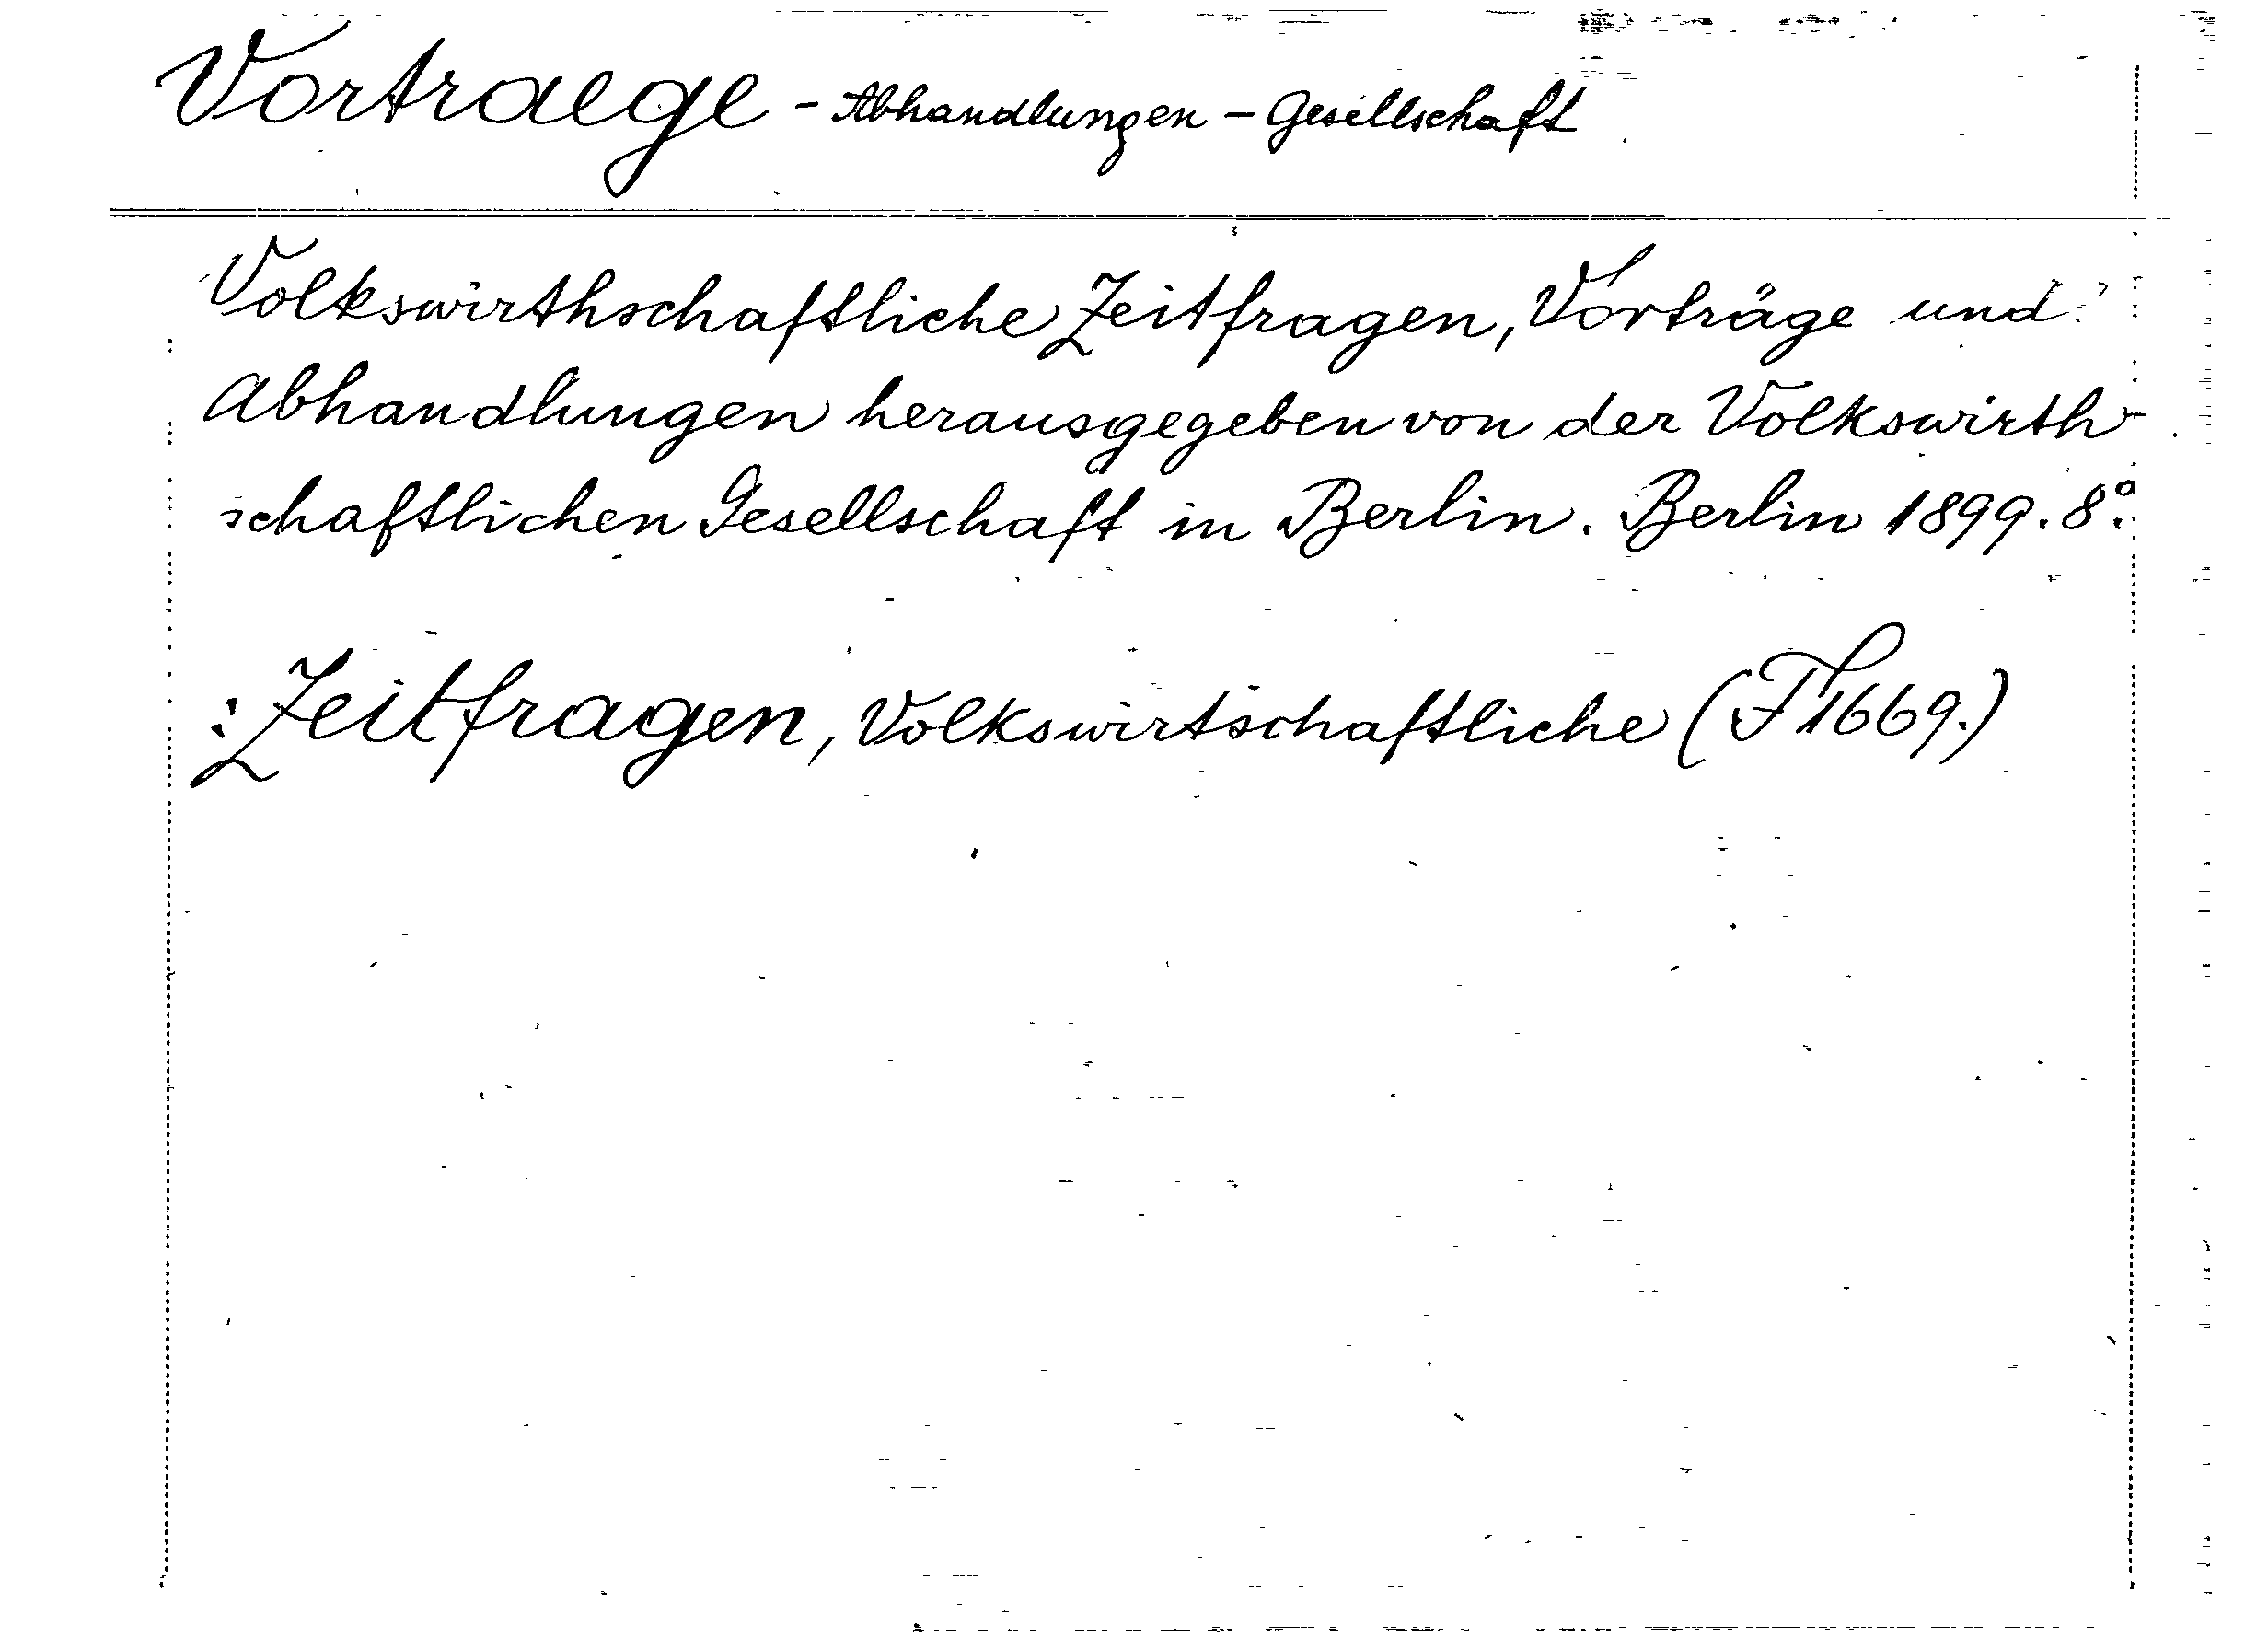 Vortraege - Abhandlungen - Gesellschaft
Volkswirthschaftliche Zeitfragen, Vorträge und
Abhandlungen herausgegeben von der Volkswirth-
schaftlichen Gesellschaft in Berlin. Berlin 1899. 8°.
: Zeitfragen, Volkswirtschaftliche (F 1669.)